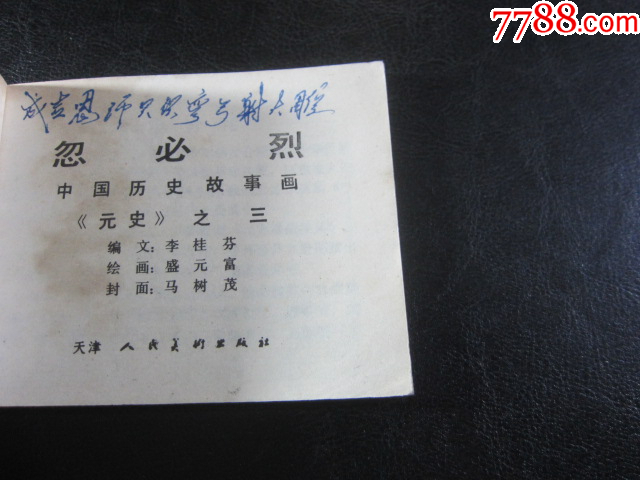 7788.com
成吉思汗只识弯弓射大雕
忽必烈
中国历史故事画
《元史》之三
编文:李桂芬
绘画:盛元富
封面:马树茂
天津人民美术出版社